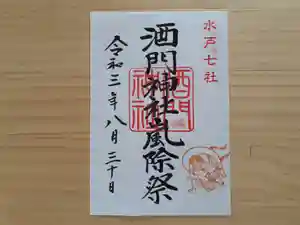 水戸七社
酒門神社嵐除祭
酒門
神社
令和三年八月三十日